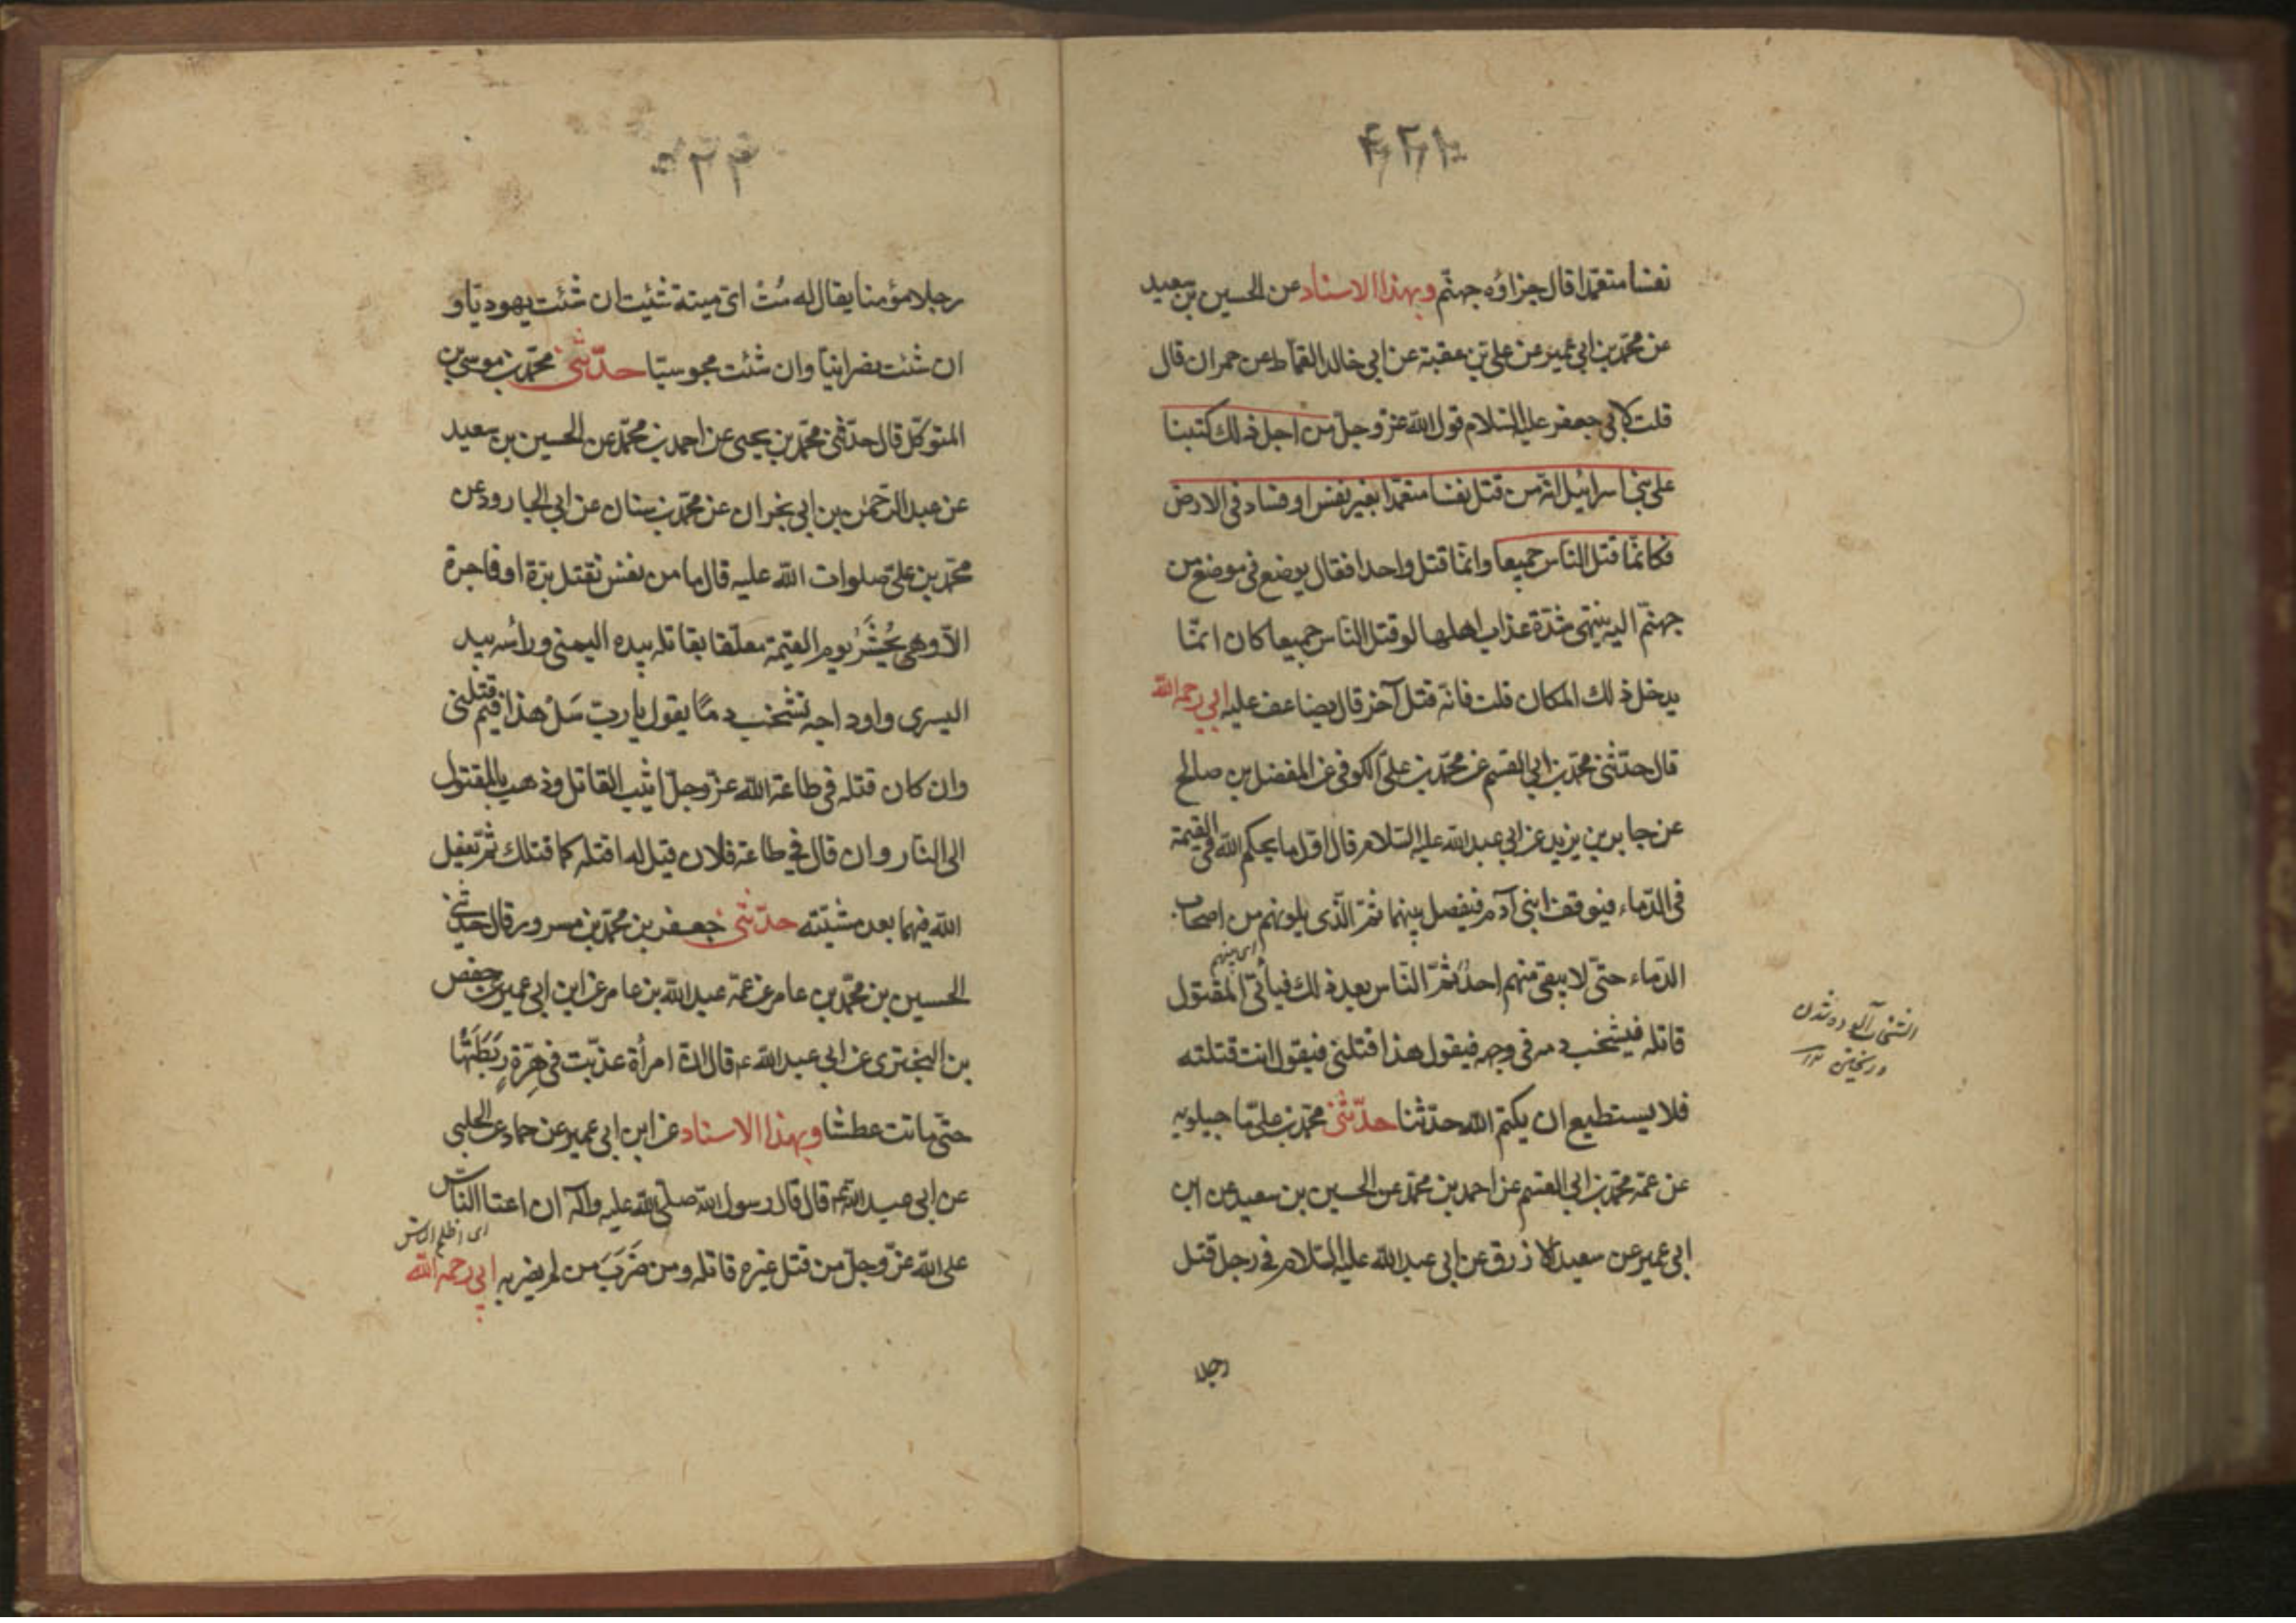 نفسا متعمّدا قال جزاؤه جهنّم وبهذا الاسناد عن الحسين بن سعيد
عن محمّد بن ابي عمير عن علي بن عقبة عن ابي خالد القماط عن حمران قال
قلت لابي جعفر عليه السّلام قول الله عزّ وجلّ من اجل ذلك كتبنا
على بني اسرائيل انّه من قتل نفسا متعمّدا بغير نفس او فساد في الارض
فكانّما قتل النّاس جميعا وانّما قتل واحدا فقال يوضع في موضع من
جهنّم اليه ينتهى شدّة عذاب اهلها لو قتل النّاس جميعا كان انّما
يدخل ذلك المكان قلت فانّه قتل آخر قال يضاعف عليه ابي رحمه الله
قال حدّثني محمّد بن ابي القسم عن محمّد بن عليّ الكوفي عن المفضل بن صالح
عن جابر بن يزيد عن ابي عبد الله عليه السّلام قال اوّل ما يحكم الله في القيمة
في الدّماء فيوقف ابنى آدم فيفصل بينهما ثمّ الّذي يلونهم من اصحاب
الدّماء حتّى لا يبقى منهم احدٌ ثمّ النّاس بعد ذلك فيأتي المقتول
قاتله فيشخب دمه في وجهه فيقول هذا قتلني فيقول انت قتلته
فلا يستطيع ان يكتم الله حدّثنا حدّثني محمّد بن عليّ ما جيلويه
عن عمّه محمّد بن ابي القسم عن احمد بن محمّد عن الحسين بن سعيد عن ابن
ابي عمير عن سعيد الازرق عن ابي عبد الله عليه السّلام في رجل قتل
رجلا
رجلا مؤمنا يقال له مُتْ ايّ ميتة شئت ان شئت يهوديّا و
ان شئت نصرانيّا وان شئت مجوسيّا حدّثني محمّد بن موسى بن
المتوكّل قال حدّثني محمّد بن يحيى عن احمد بن محمّد عن الحسين بن سعيد
عن عبد الرّحمن بن ابي نجران عن محمّد بن سنان عن ابي الجارود عن
محمّد بن عليّ صلوات الله عليه قال ما من نفس تقتل برّة او فاجرة
الاّ وهي تُحْشَرُ يوم القيمة معلّقا بقاتله بيده اليمنى ورأسه بيد
اليسرى واوداجه تشخب دمًا يقول يا ربّ سَلْ هذا فيم قتلني
وان كان قتله في طاعة الله عزّ وجلّ اثيب القاتل وذهب بالمقتول
الى النّار وان قال في طاعة فلان قيل له اقتله كما قتلك ثمّ يفعل
الله فيهما بعد مشيّته حدّثني جعفر بن محمّد بن مسرور قال حدّثني
الحسين بن محمّد بن عامر عن عمّه عبد الله بن عامر عن ابن ابي عمير عن حفص
بن البختري عن ابي عبد الله ع قال انّ امرأة عذّبت في هِرّةٍ رَبَطَتْهَا
حتّى ماتت عطشا وبهذا الاسناد عن ابن ابي عمير عن حماد عن الحلبي
عن ابي عبد الله ع قال قال رسول الله صلّى الله عليه وآله ان اعتا النّاس
اى اظلم الناس
على الله عزّ وجلّ من قتل غيره قاتله ومن ضَرَبَ من لم يضربه ابي رحمه الله